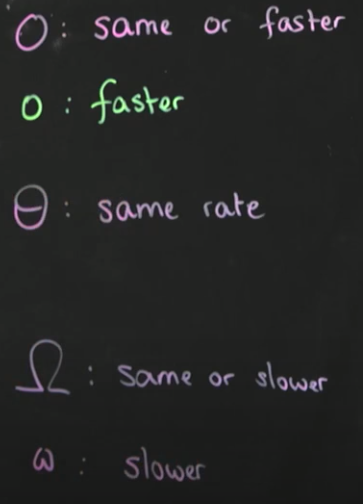 O: same or faster
o : faster
Θ: same rate
Ω: same or slower
ω : slower